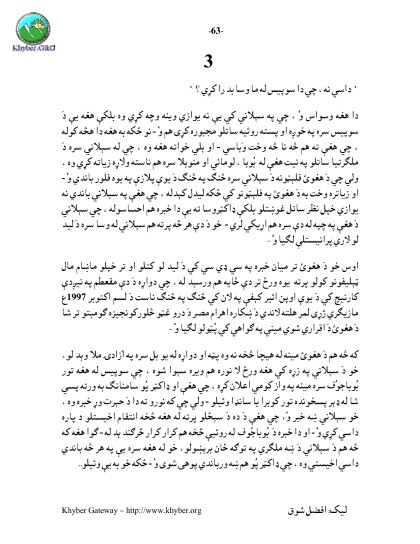 Khyber.ORG
-63-
3
" داسې نه ، چې دا سوپيس له ما وسا بد را کړي ؟ "
دا هغه وسواس وُ ، چې په سېلاني کې يې نه يوازې وينه وچه کړې وه بلکې هغه يې دَ
سوپيس سره په خوږه او پسته روئيه ساتلو مجبوره کړی هم وُ - نو ځکه به هغه دا هڅه کوله
، چې هغې ته هم څه نا څه وخت وَباسي - او بلې خواته هغه وه ، چې له سېلاني سره دَ
ملګرتيا ساتلو په نيت هغې له پُوپا ، لومائي او منوېلا سره هم ناسته ولاړه زياته کړې وه ،
ولې چې دَ هغوئ فليټونه دَ سېلاني سره څنګ په څنګ دَ يوې پلازې په يوه فلور باندې وُ -
او زياتره وخت به دَ هغوئ په فليټونو کې ځکه ليدل کېدله ، چې هغې په سېلاني باندې نه
يوازې خپل نظر ساتل غوښتلو بلکې ډاکټر وسا ته يې دا خبره هم احساسوله ، چې سېلاني
دَ هغې په چپه له دې سره هم اړيکې لري - خو دَ دې هر څه پرته هم سېلاني له وسا سره دَ ليد
لو لارې پرانيستلې لګيا وُ -
اوس خو دَ هغوئ تر ميان خبره په سي ډي سي کې دَ ليد لو کتلو او تر خپلو ماښام مال
ټېليفونو کولو پرته يوه ورځ تر دې ځايه هم ورسېد له ، چې دواړه دَ دې مقعطم په نيږدې
کارنيچ کې دَ يوې اوپن ائير کيفې په لان کې څنګ په څنګ ناست دَ لسم اکتوبر 1997ع
مازيګري زړی لمر هلته لاندې دَ ښکاره اهرام مصر دَ درو غټو څلورکونجيزه ګومبتو تر شا
دَ هغوئ دَ اقرارې شوې مينې په ګواهۍ کې پُټولو لګيا وُ -
که څه هم دَ هغوئ مينه له هيچا څخه نه وه پټه او دواړه له يو بل سره په آزادۍ ملاوېد لو،
خو دَ سېلاني په زړه کې هغه ورځ لا نوره هم ويره سېوا شوه ، چې سوپيس له هغه تور
بُوباجوُف سره مينه په واز کومې اعلان کړه ، چې هغې او ډاکټر پُو سامنانګ به ورته پسې
شا له ډېر پسخونده تور کوبرا يا ساندا وئيلو - ولې چې که نورو ته دا دَ حيرت وړ خبره وه ،
خو سېلاني ښه خبر وُ ، چې هغې دَ ده دَ سېځلو پرته له هغه څخه انتقام اخيستلو دَ پاره
داسې کړي وُ - او دا خبره دَ بُوباجُوف له روئيې څخه هم کرار کرار څرګند بد له - ګوا هغه که
څه هم دَ سېلاني دَ ښه ملګري په توګه ځان برېښولو ، خو له هغه سره يې په هر څه باندې
داسې اخيستې وه ، چې ډاکټر پُو هم ښه ورباندې پوهی شوی وُ - ځکه خو به يې وئيلو..
Khyber Gateway – http://www.khyber.org
ليک: افضل شوق